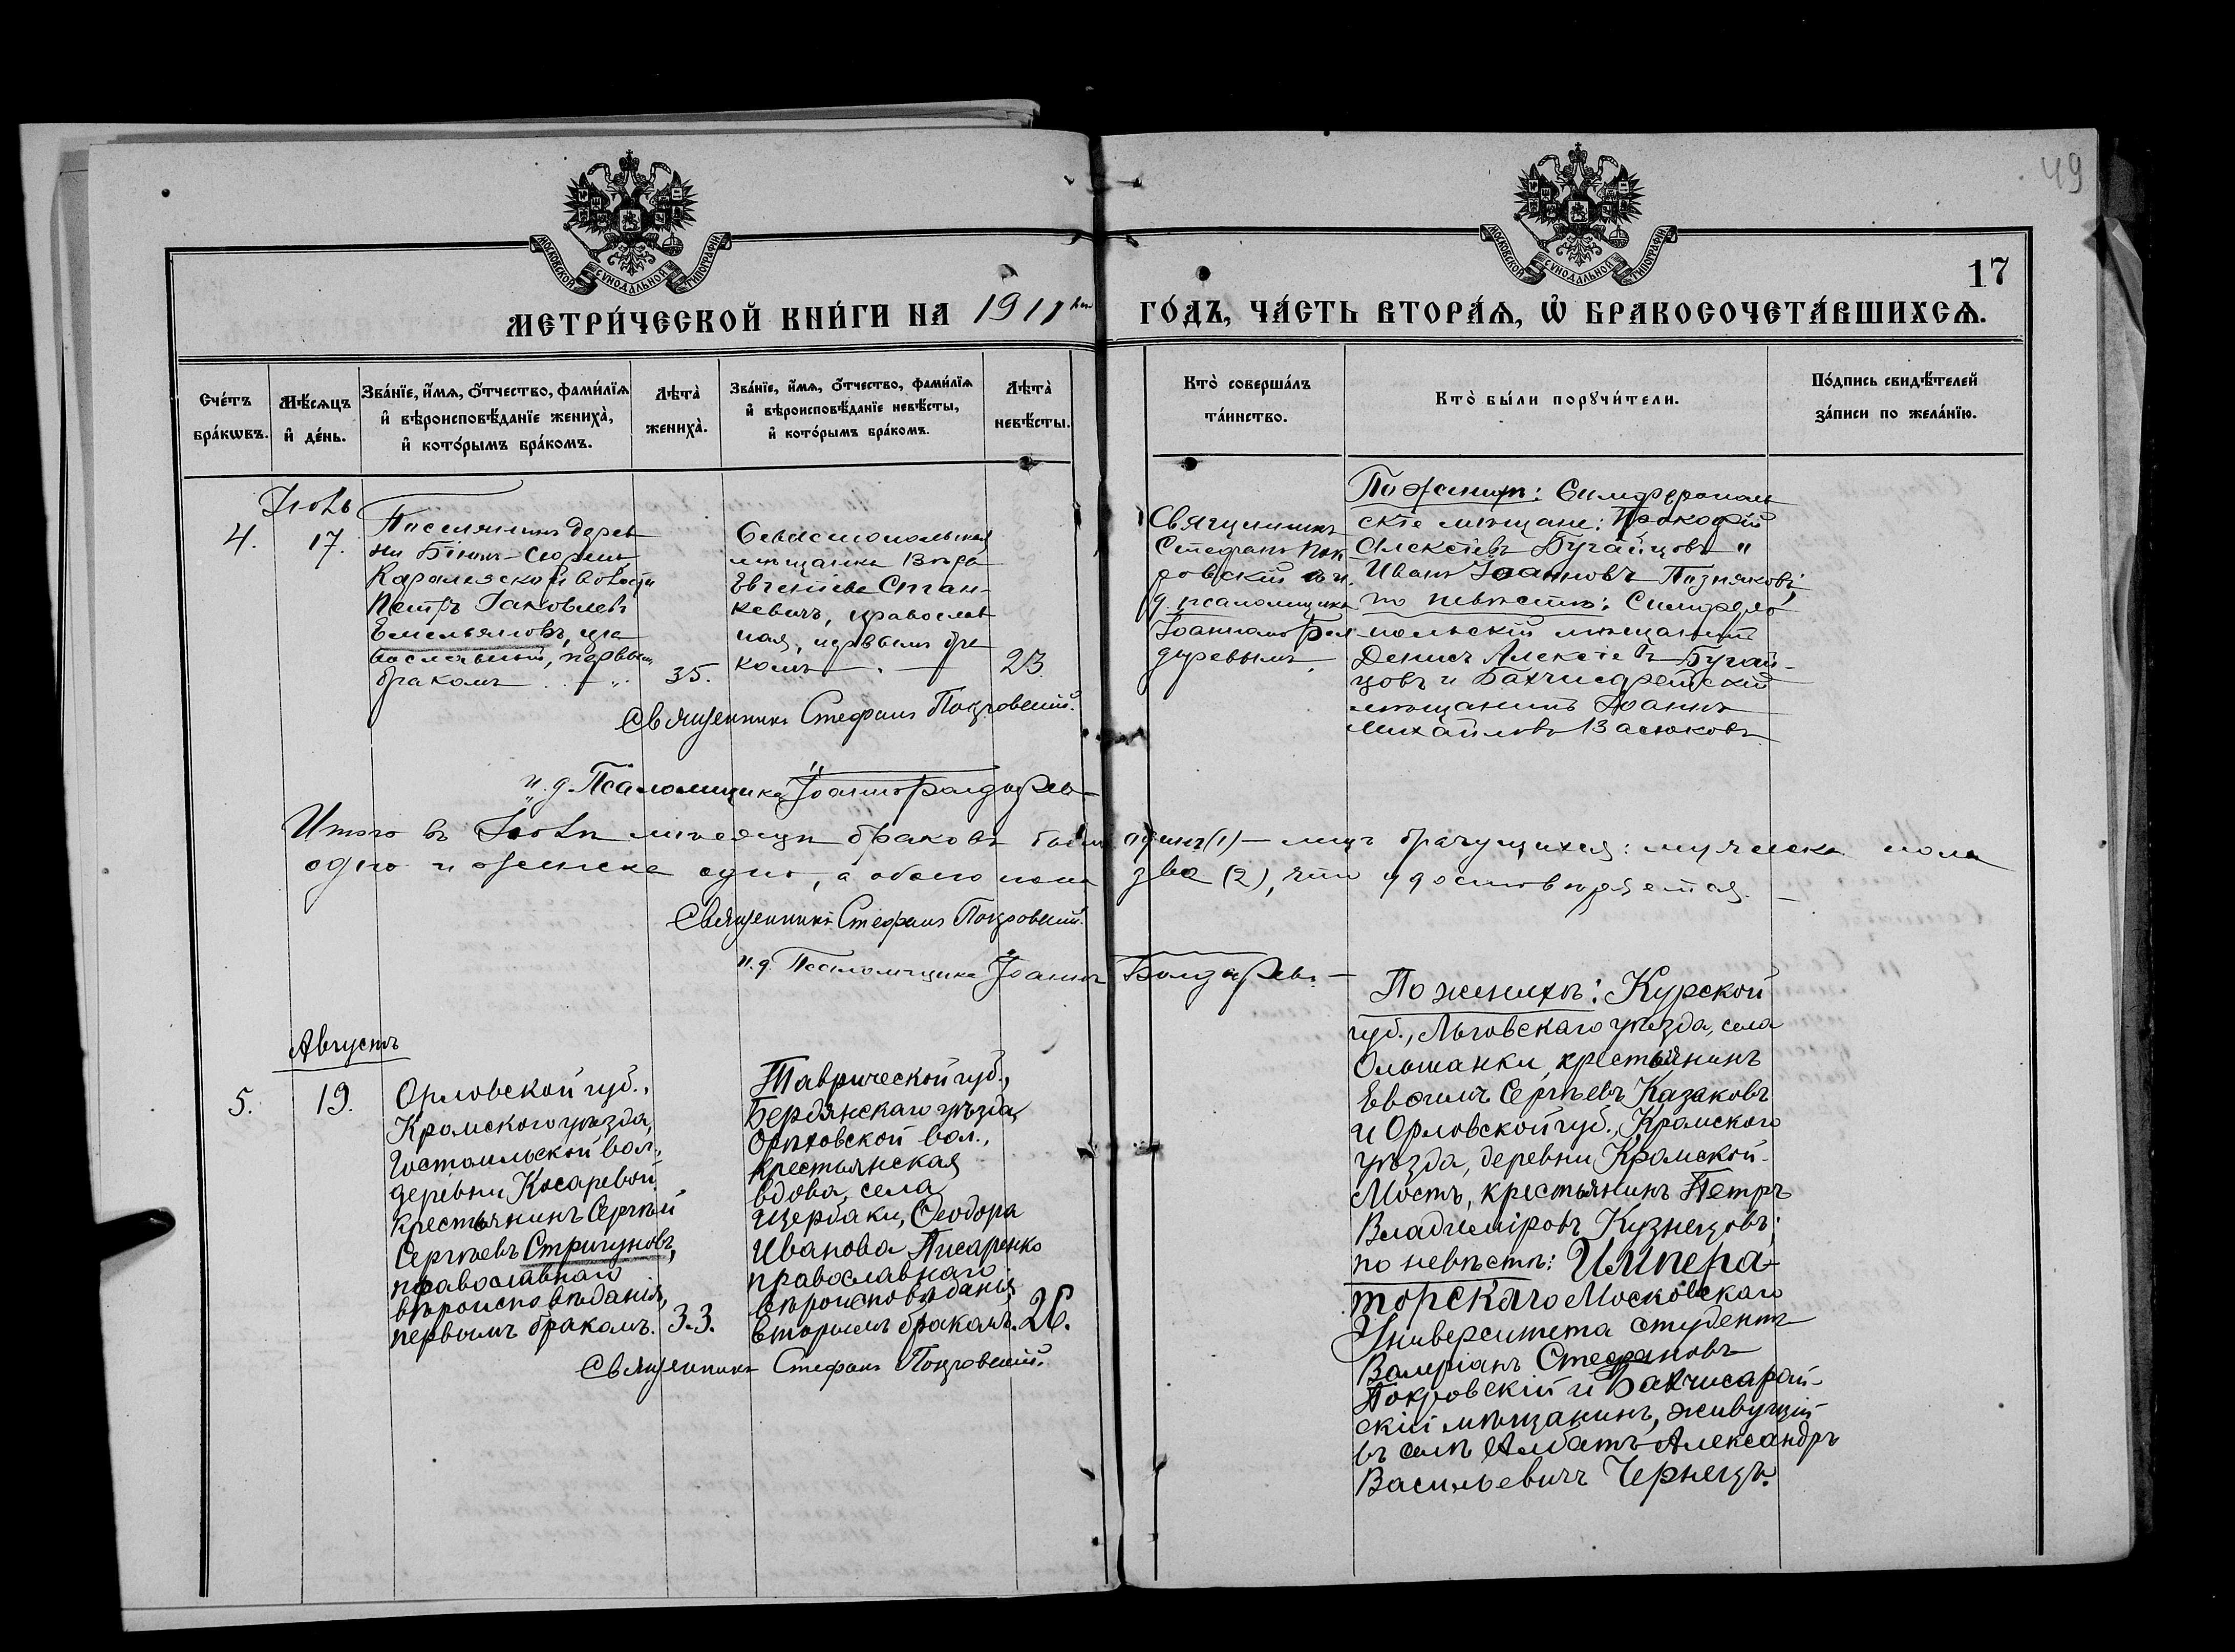 49
МОСКОВСКОЙ СѴНОДАЛЬНОЙ ТИПОГРАФІИ
МОСКОВСКОЙ СѴНОДАЛЬНОЙ ТИПОГРАФІИ
17
МЕТРИ́ЧЕСКОЙ КНИ́ГИ НА 1911
ГО́ДЪ, ЧА́СТЬ ВТОРА́Ѧ, Ѽ БРАКОСОЧЕТА́ВШИХСѦ.
Сче́тъ
бра́кѡвъ.
Мѣ́сѧцъ
и҆ де́нь.
Зва́нїе, и҆́мѧ, ѻ҆́тчество, фами́лїѧ
и҆ вѣроисповѣ́данїе жениха̀,
и҆ кото́рымъ бра́комъ.
Лѣ́та̀
жениха̀.
Зва́нїе, и҆́мѧ, ѻ҆́тчество, фами́лїѧ
и҆ вѣроисповѣ́данїе невѣ́сты,
и҆ кото́рымъ бра́комъ.
Лѣ́та̀
невѣ́сты.
Кто̀ соверша́лъ
та́инство.
Кто̀ бы́ли порꙋчи́тели.
По́дпись свидѣ́телей
за́писи по жела́нїю.
Іюль
4.
17.
Поселянинъ дерев
ни Біюкъ-Сюрень
Каралезской волости
Петръ Іаковлевъ
Емельяновъ, пра
вославный, первымъ
бракомъ
35.
Севастопольская
мѣщанка Вѣра
Евгеніева Стан-
кевичъ, православ
ная, первымъ бра
комъ
23.
Священникъ
Стефанъ Пок
ровскій и и.
д. псаломщика
Іоанномъ Бол
дыревымъ.
По женихѣ: Симферополь
скіе мѣщане: Прокофій
Алексіевъ Бугайцовъ и
Иванъ Іоанновъ Позняковъ;
по невѣстѣ: Симферо
польскій мѣщанинъ
Денисъ Алексіевъ Бугай-
цовъ и Бахчисарайскій
мѣщанинъ Іоаннъ
Михайловъ Васюковъ
Священникъ Стефанъ Покровскій.
и. д. Псаломщика Іоаннъ Болдырев
Итого въ Іюлѣ мѣсяцѣ браковъ было одинъ (1) — лицъ брачущихся: мужеска пола
одно и женска одно, а обоего пола два (2), что удостовѣряется. —
Священникъ Стефанъ Покровскій.
и. д. Псаломщика Іоаннъ Болдыревъ. —
Августъ
5.
19.
Орловской губ.,
Кромского уѣзда,
Гостомльской вол.,
деревни Косаревой
крестьянинъ Сергѣй
Сергѣевъ Стригуновъ,
православнаго
вѣроисповѣданія,
первымъ бракомъ.
33.
Таврической губ.,
Бердянскаго уѣзда,
Орѣховской вол.,
крестьянская
вдова, села
Щербаки, Ѳеодора
Иванова Писаренко
православнаго
вѣроисповѣданія
вторымъ бракомъ.
26.
По женихѣ: Курской
губ., Льговскаго уѣзда, села
Ольшанки, крестьянинъ
Евѳимъ Сергѣевъ Казаковъ
и Орловской губ., Кромского
уѣзда, деревни Кромской-
Мостъ, крестьянинъ Петръ
Владиміровъ Кузнецовъ;
по невѣстѣ: Импера-
торскаго Московскаго
Университета студентъ
Валеріанъ Стефановъ
Покровскій и Бахчисарай-
скій мѣщанинъ, живущій
въ селѣ Албатъ Александръ
Васильевичъ Чернецъ.
Священникъ Стефанъ Покровскій.